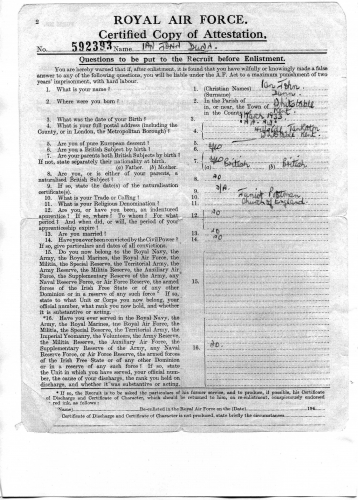 2
ROYAL AIR FORCE.
Certified Copy of Attestation.
No. 592393 Name IAN JOHN
Questions to be put to the Recruit before Enlistment.
You are hereby warned that if, after enlistment, it is found that you have wilfully or knowingly made a false
answer to any of the following questions, you will be liable under the A.F. Act to a maximum punishment of two
years' imprisonment, with hard labour.
1. What is your name? 1. (Christian Names) Ian John
(Surname)
2. Where were you born? 2. In the Parish of
in, or near, the Town of Whitstable
in the County of
3. What was the date of your Birth? 3.
4. What is your full postal address (including the 4.
County, or in London, the Metropolitan Borough)?
5. Are you of pure European descent? 5. yes
6. Are you a British Subject by birth? 6. yes
7. Are your parents both British Subjects by birth? 7. yes
If not, state separately their nationality at birth. (a) British (b) British
(a) Father. (b) Mother.
8. Are you, or is either of your parents, a 8. no
naturalised British Subject?
9. If so, state the date(s) of the naturalisation 9. N/A.
certificate(s).
10. What is your Trade or Calling? 10.
11. What is your Religious Denomination? 11. Church of England
12. Are you, or have you been, an indentured 12. no
apprentice? If so, where? To whom? For what
period? And when did, or will, the period of your
apprenticeship expire?
13. Are you married? 13. no
14. Have you ever been convicted by the Civil Power? 14. no
If so, give particulars and dates of all convictions.
15. Do you now belong to the Royal Navy, the 15.
Army, the Royal Marines, the Royal Air Force, the
Militia, the Special Reserve, the Territorial Army, the
Army Reserve, the Militia Reserve, the Auxiliary Air
Force, the Supplementary Reserve of the Army, any
Naval Reserve Force, or Air Force Reserve, the armed
forces of the Irish Free State or of any other
Dominion or in a reserve of any such force? If so,
state to what Unit or Corps you now belong, your
official number, what rank you now hold, and whether
it is substantive or acting.
*16. Have you ever served in the Royal Navy, the 16. no.
Army, the Royal Marines, the Royal Air Force, the
Militia, the Special Reserve, the Territorial Army, the
Imperial Yeomanry, the Volunteers, the Army Reserve,
the Militia Reserve, the Auxiliary Air Force, the
Supplementary Reserve of the Army, any Naval
Reserve Force, or Air Force Reserve, the armed forces
of the Irish Free State or of any other Dominion or
in a reserve of any such force? If so, state
the Unit in which you have served, your official num-
ber, the cause of your discharge, the rank you held on
discharge, and whether it was substantive or acting.
* If so, the Recruit is to be asked the particulars of his former service, and to produce, if possible, his Certificate
of Discharge and Certificate of Character, which should be returned to him, on re-enlistment, conspicuously endorsed
in red ink, as follows:
(Name) Re-enlisted in the Royal Air Force on the (Date) 194
Certificate of Discharge and Certificate of Character is not produced, state briefly the circumstances